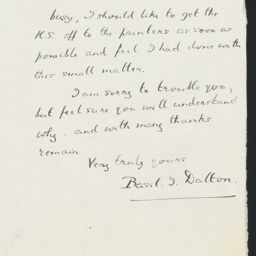 busy, I should like to get the
MS. off to the printers as soon as
possible and feel I had done with
this small matter.
I am sorry to trouble you,
but feel sure you will understand
why - and with many thanks
remain
Very truly yours
Basil I. Dalton.